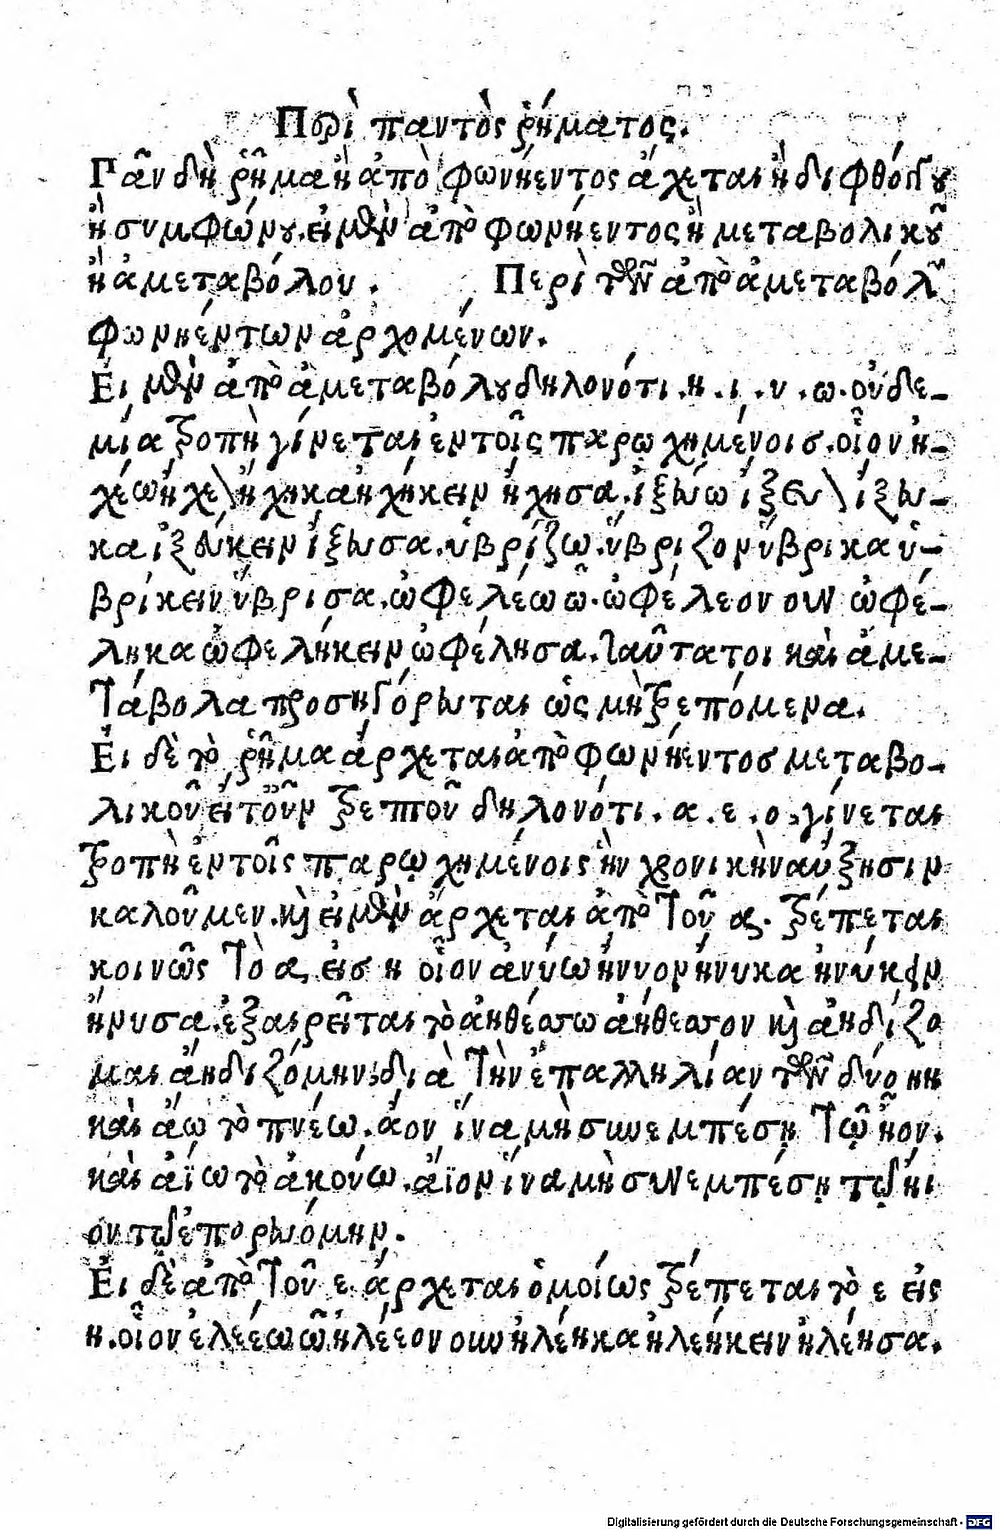 Περὶ παντὸς ῥήματος.
Πᾶν δὴ ῥῆμα ἢ ἀπὸ φωνήεντος ἄρχεται ἢ διφθόγγου
ἢ συμφώνου. εἰ μὲν ἀπὸ φωνήεντος ἢ μεταβολικοῦ
ἢ ἀμεταβόλου. Περὶ τῶν ἀπὸ ἀμεταβόλων
φωνηέντων ἀρχομένων.
Εἰ μὲν ἀπὸ ἀμεταβόλου δηλονότι. η. ι. υ. ω. οὐδε-
μία τροπὴ γίνεται ἐν τοῖς παρῳχημένοισ. οἷον ἠ-
χέω ἤχευν ἤχηκα ἠχήκειν ἤχησα. ἰξεύω ἴξευον ἴξευ-
κα ἰξεύκειν ἴξευσα. ὑβρίζω. ὕβριζον ὕβρικα ὑ-
βρίκειν ὕβρισα. ὠφελέω ῶ. ὠφέλεον ουν ὠφέ-
ληκα ὠφελήκειν ὠφέλησα. ταῦτα τοι καὶ ἀμε-
τάβολα προσηγόρευται ὡς μὴ τρεπόμενα.
Εἰ δὲ τὸ ῥῆμα ἄρχεται ἀπὸ φωνήεντοσ μεταβο-
λικοῦ εἰτοῦν τρεπτοῦ δηλονότι. α. ε. ο. γίνεται
τροπὴ ἐν τοῖς παρῳχημένοις ἣν χρονικὴν αὔξησιν
καλοῦμεν. καὶ εἰ μὲν ἄρχεται ἀπὸ τοῦ α. τρέπεται
κοινῶς τὸ α, εἰσ η οἷον ἀνύω ἤνυον ἤνυκα ἠνύκειν
ἤνυσα. ἐξαιρεῖται τὸ ἀηθέσσω ἀήθεσσον καὶ ἀηδίζο
μαι ἀηδιζόμην, διὰ τὴν ἐπαλληλίαν τῶν δύο ηη
καὶ ἄω τὸ πνέω. ἄον ἵνα μὴ συνεμπέσῃ τῷ ἦον.
καὶ ἀΐω τὸ ἀκούω. ἄϊον ἵνα μὴ συνεμπέσῃ τῷ ἤι
ον τῷ ἐπορευόμην.
Εἰ δὲ ἀπὸ τοῦ ε ἄρχεται ὁμοίως τρέπεται τὸ ε εἰς
η. οἷον ἐλεέω ῶ ἠλέεον ουν ἠλέηκα ἠλεήκειν ἠλέησα.
Digitalisierung gefördert durch die Deutsche Forschungsgemeinschaft - DFG